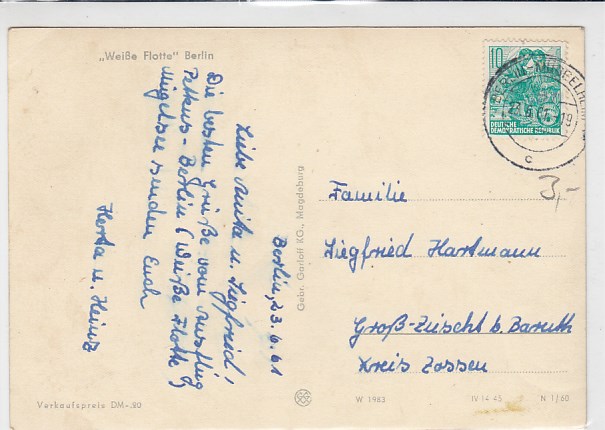 „Weiße Flotte" Berlin
Berlin, 23.6.61
Liebe Anita u. Siegfried!
Die besten Grüße vom Ausflug
Petkus - Berlin (Weiße Flotte)
Mügelsee senden Euch
Herta u. Heinz
Verkaufspreis DM -.20
Gebr. Garloff KG., Magdeburg
10
DEUTSCHE
DEMOKRATISCHE REPUBLIK
BERLIN-MÜGGELHEIM
c
3,-
Familie
Siegfried Hartmann
Groß-Ziescht b. Baruth
Kreis Zossen
W 1963
IV 14 45
N 1/60